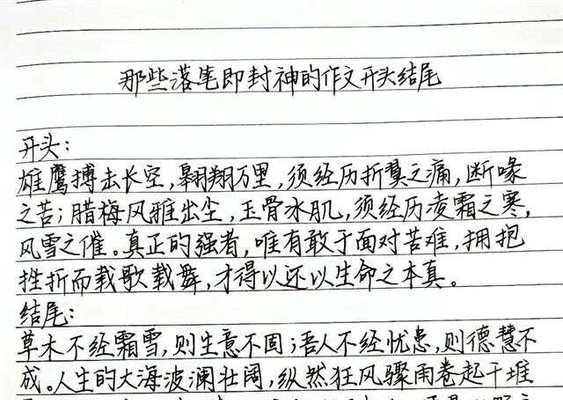 那些落笔即封神的作文开头结尾
开头：
雄鹰搏击长空，翱翔万里，须经历折翼之痛，断喙
之苦；腊梅风雅出尘，玉骨冰肌，须经历凌霜之寒，
风雪之催。真正的强者，唯有敢于面对苦难，拥抱
挫折而载歌载舞，才得以还以生命之本真。
结尾：
草木不经霜雪，则生意不固；吾人不经忧患，则德慧不
成。人生的大海波澜壮阔，纵然狂风骤雨卷起千堆